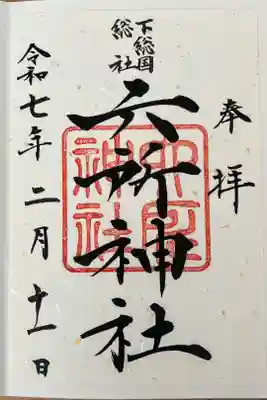 奉拝
下総国
総社
六所神社
令和七年二月十一日
六所神社